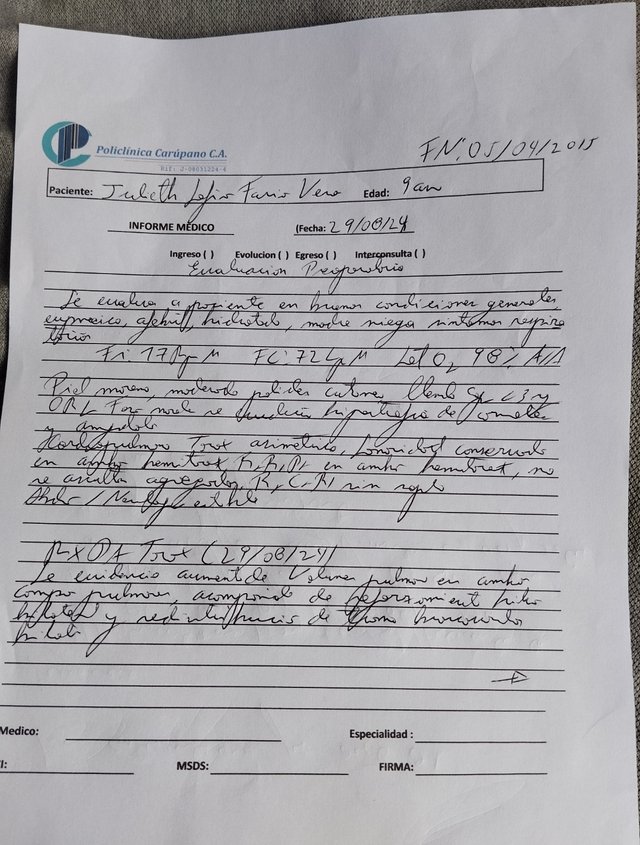 Policlínica Carúpano C.A.
Rif: J-08031224-4
FN: 05/04/2015
Paciente: Julieth Edad: 9 años
INFORME MÉDICO (Fecha: 29/08/24
Ingreso ( ) Evolucion ( ) Egreso ( ) Interconsulta ( )
Evaluacion
Se evalua a paciente en buenas condiciones generales
eupneica, afebril, hidratada, madre niega sintomas respira
torios
Fr: 17 Rpm FC: 72 Lpm Sat O2 98% A/A
Piel morena, moderada palidez cutanea, llenado
ORL Fosa nasales se evidencia hipertrofia de cornetes
y
Cardiopulmonar Torax simetrico, Sonoridad conservada
en ambos hemitorax, en ambos hemitorax, no
se ausculta agregados, R, C, R, sin soplo
Abdo / Neurologico estable
RX PA Torax (29/08/24)
Se evidencia aumento de Volumen pulmonar en ambos
campos pulmonares, acompañado de reforzamiento hilio
hiliar y redistribucion de
hiliar
Medico: Especialidad :
I: MSDS: FIRMA: